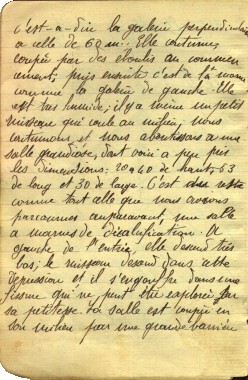 c'est-à-dire la galerie perpendiculaire
à celle de 60 m. Elle continue,
coupée par des éboulis au commen
cement; puis ensuite c'est de la
comme la galerie de gauche. Elle
est très humide; il y a même un petit
ruisseau qui coule au milieu, nous
continuons, et nous aboutissons à une
salle grandiose, dont voici à peu près
les dimensions: 20 à 40 de haut, 63
de long et 30 de large. C'est du reste
comme tout celle que nous avons
parcourues auparavant, une salle
à marnes de décalcification. A
gauche de l'entrée, elle descend très
bas; le ruisseau descend dans cette
dépression et il s'engouffre dans une
fissure qui ne peut être explorée par
sa petitesse. La salle est coupée en
son milieu par une grande barrière